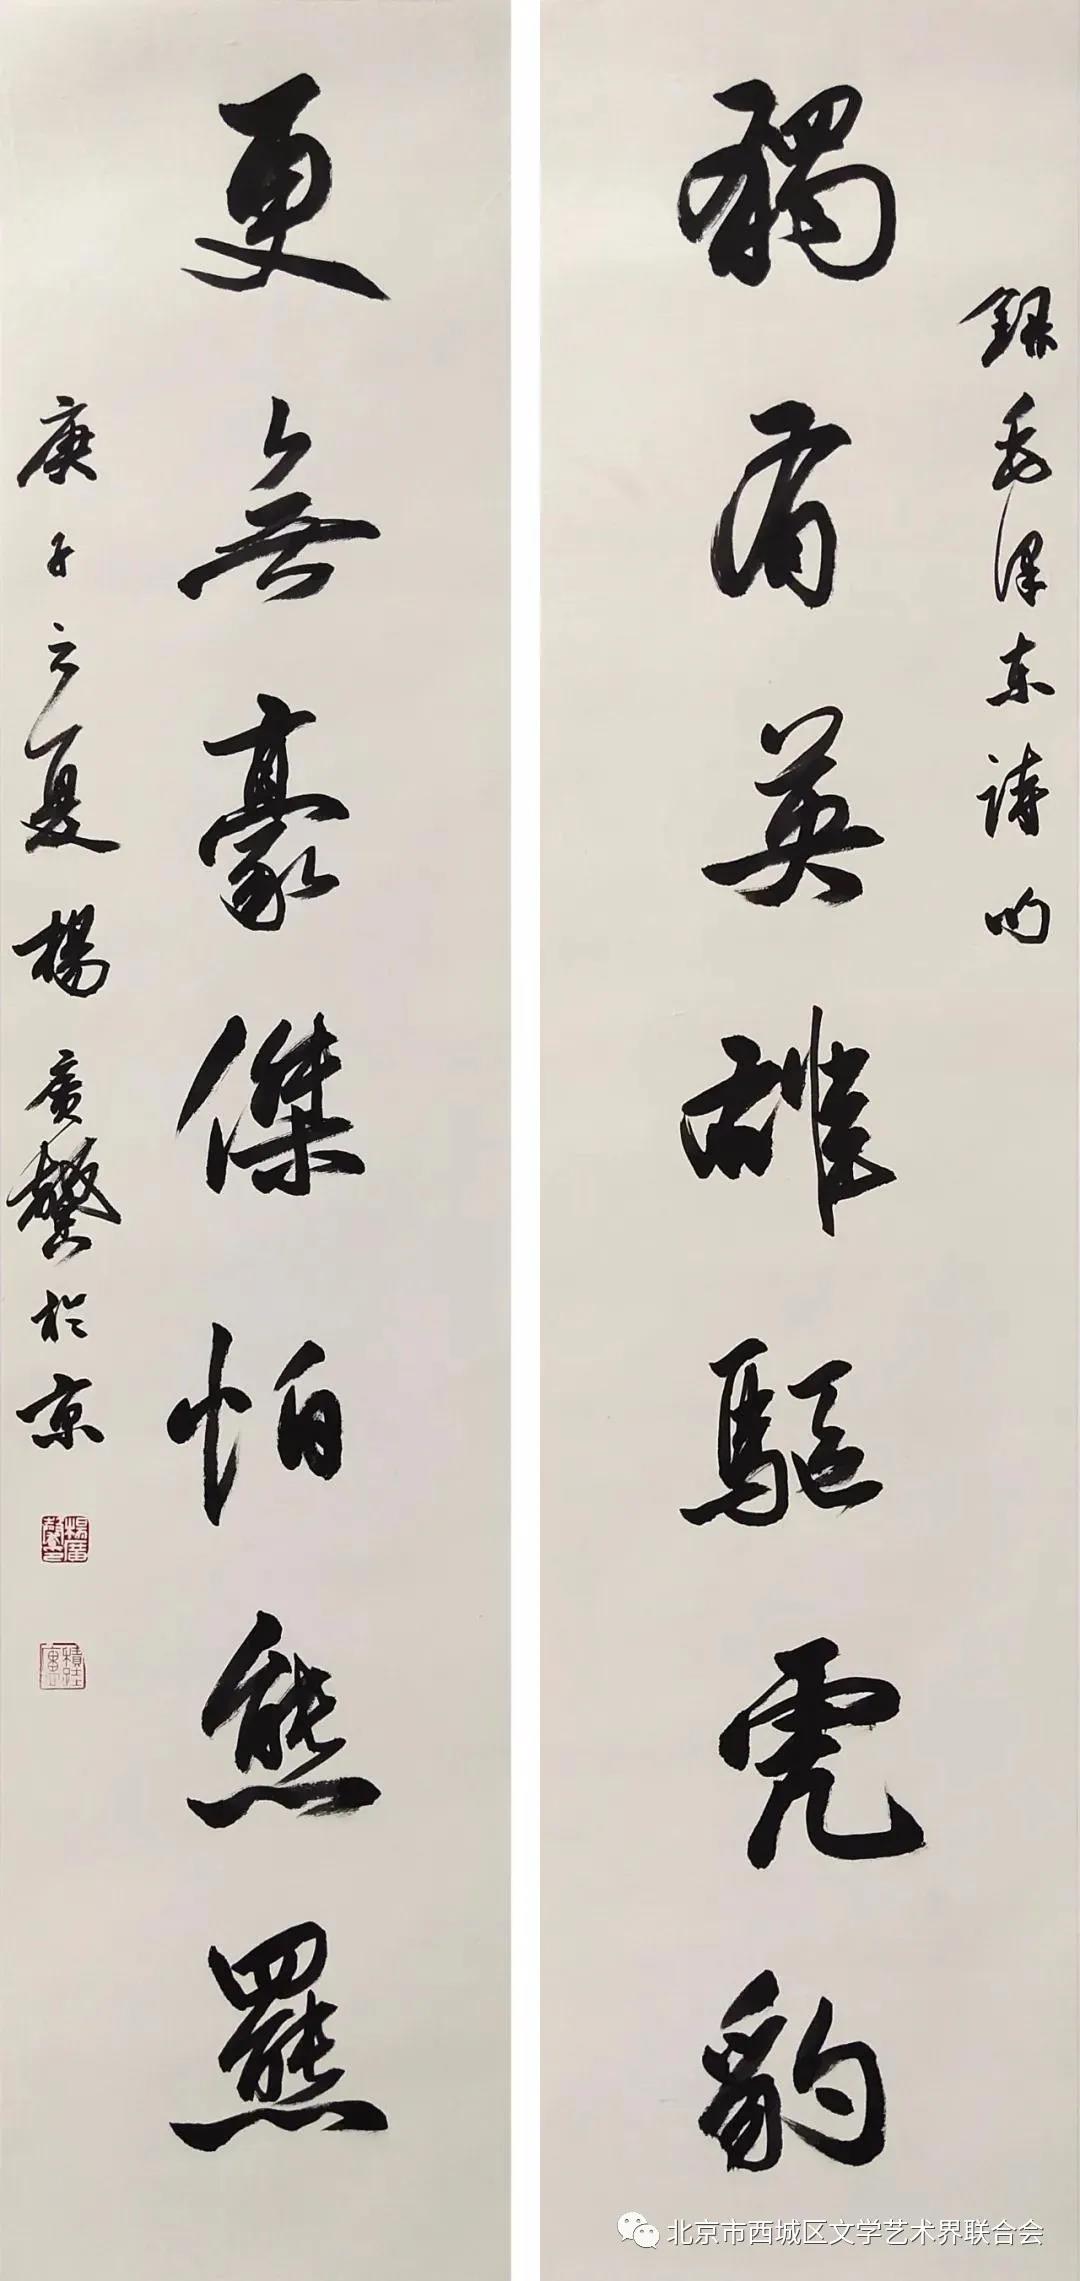 錄毛澤東詩句
獨有英雄驅虎豹
更無豪傑怕熊羆
庚子之夏楊廣馨於京
楊廣馨印
北京市西城区文学艺术界联合会